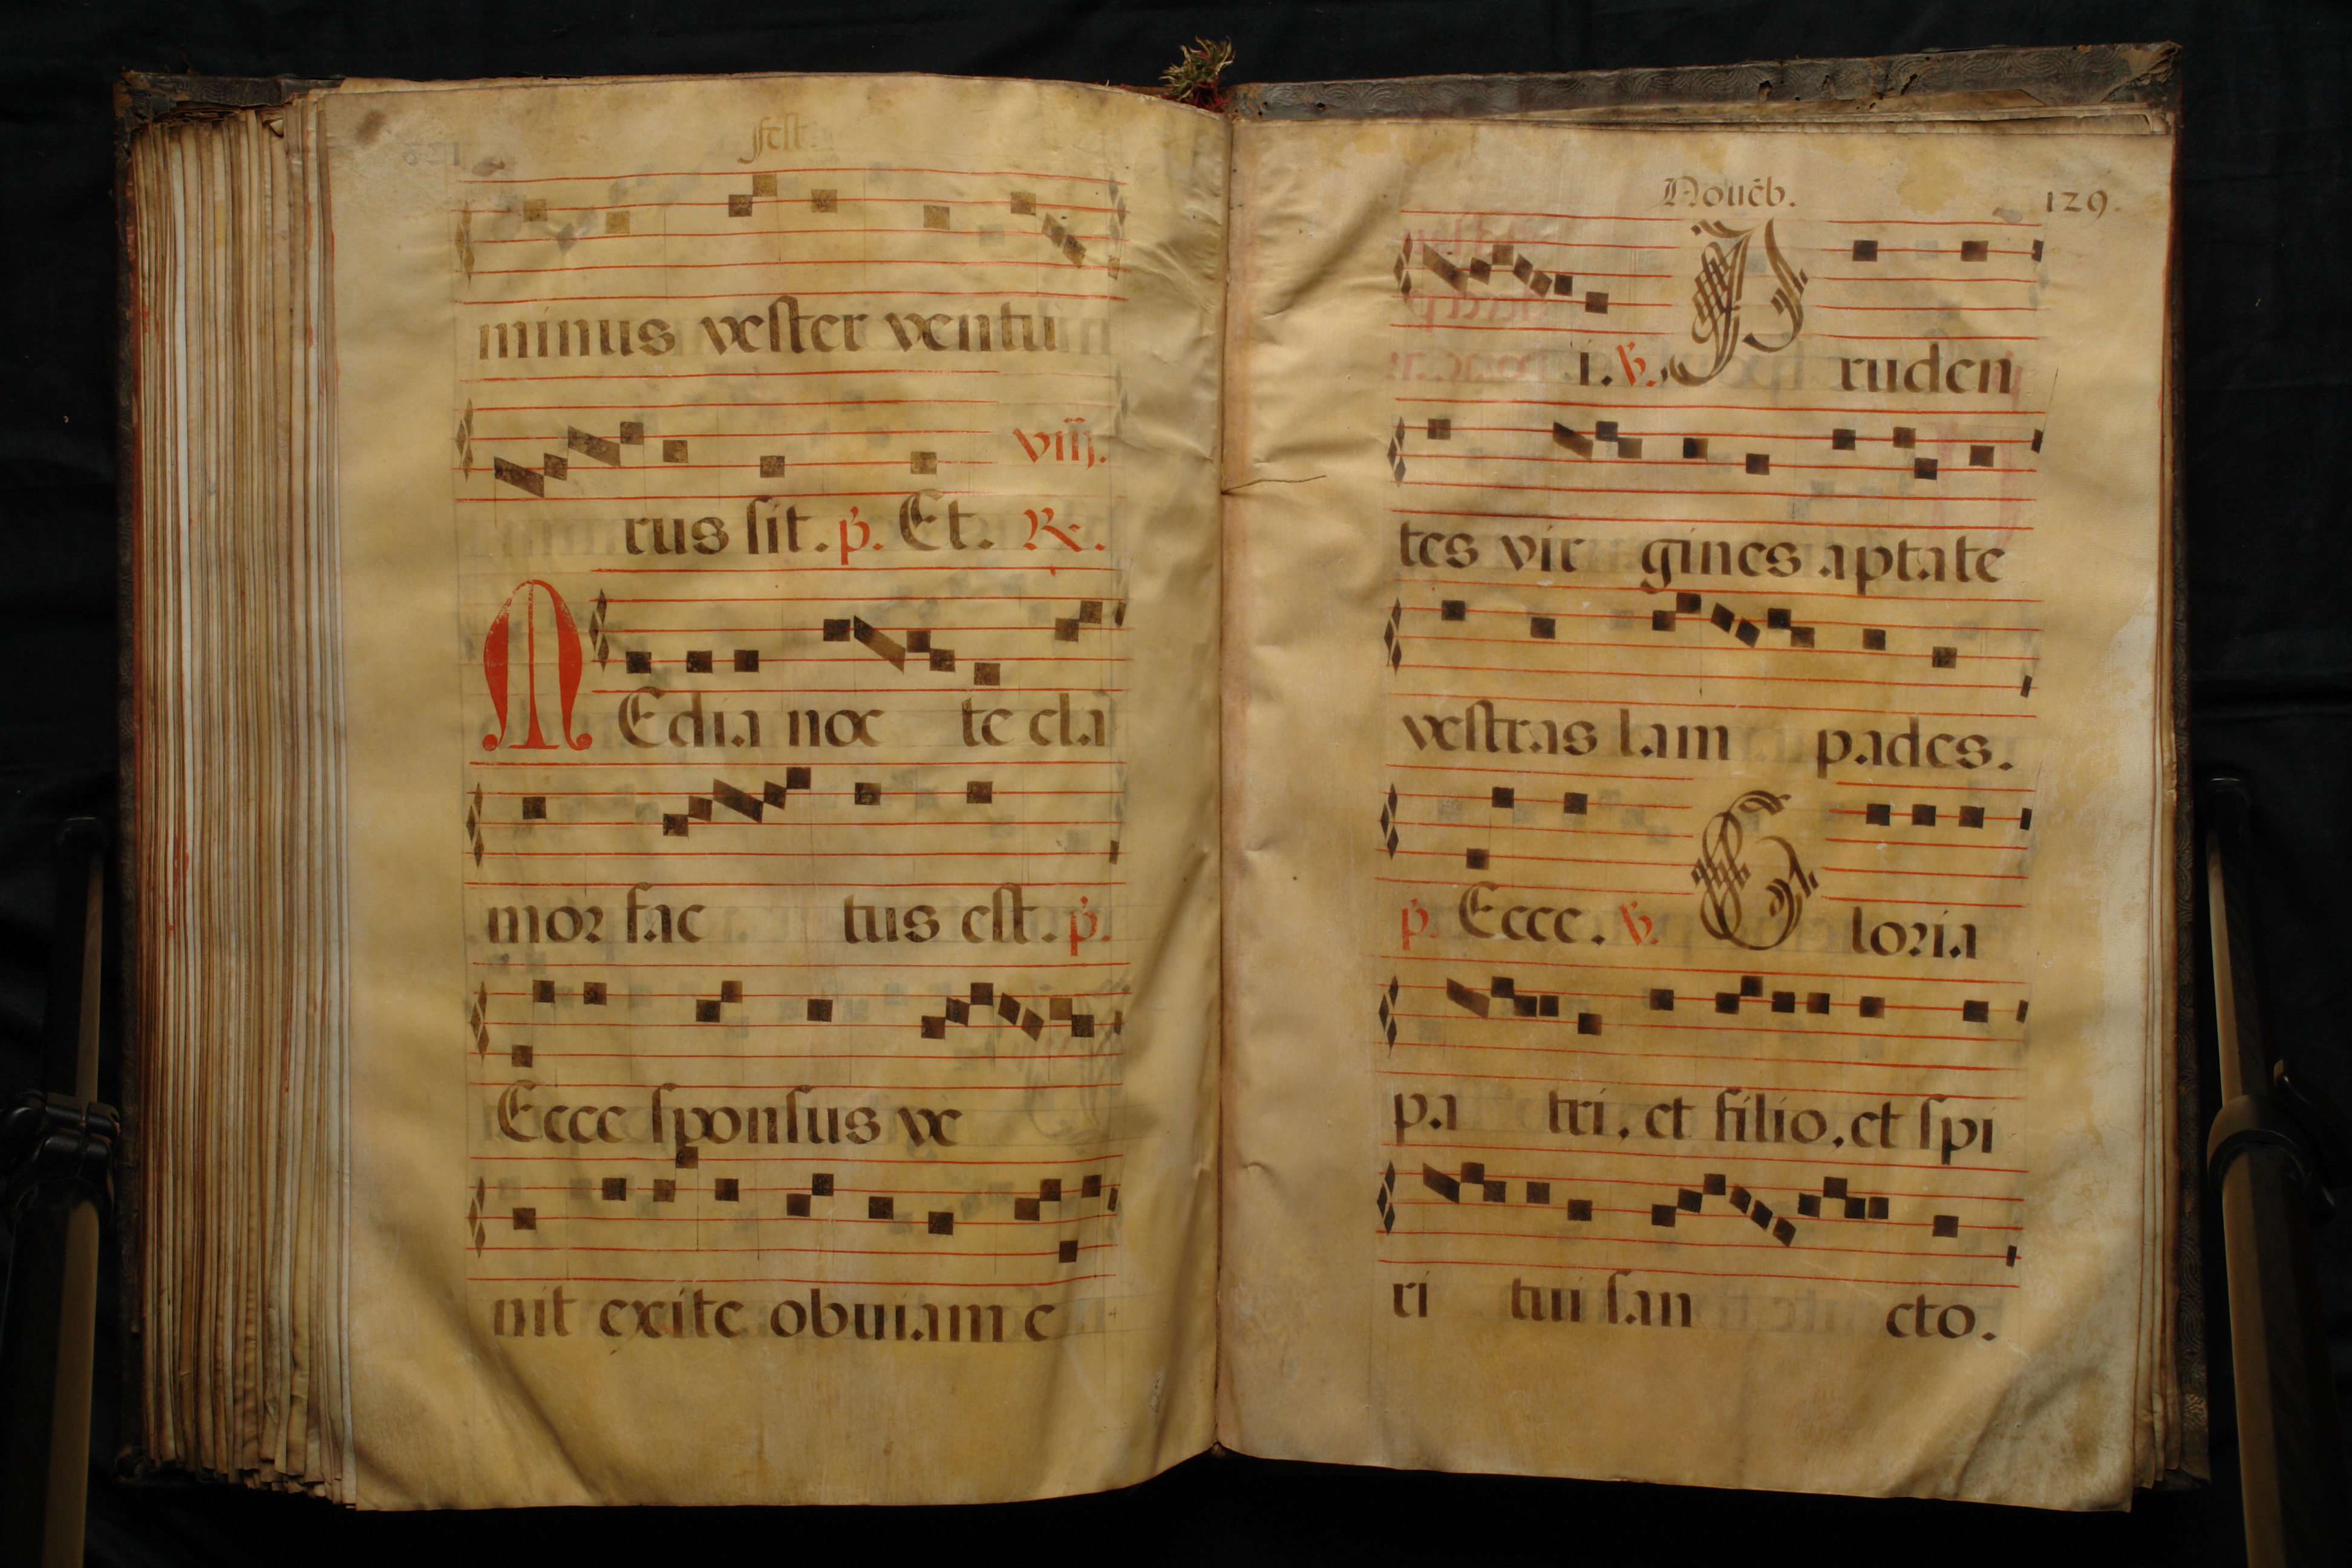 fest.
minus vester ventu
viij.
rus sit. p. Et. R.
MEdia noc te cla
mor fac tus est. p.
Ecce sponsus ve
nit exite obuiam e
Nouẽb. 129.
i. V. Pruden
tes vir gines aptate
vestras lam pades.
p. Ecce. V. Gloria
pa tri, et filio, et spi
ri tui san cto.